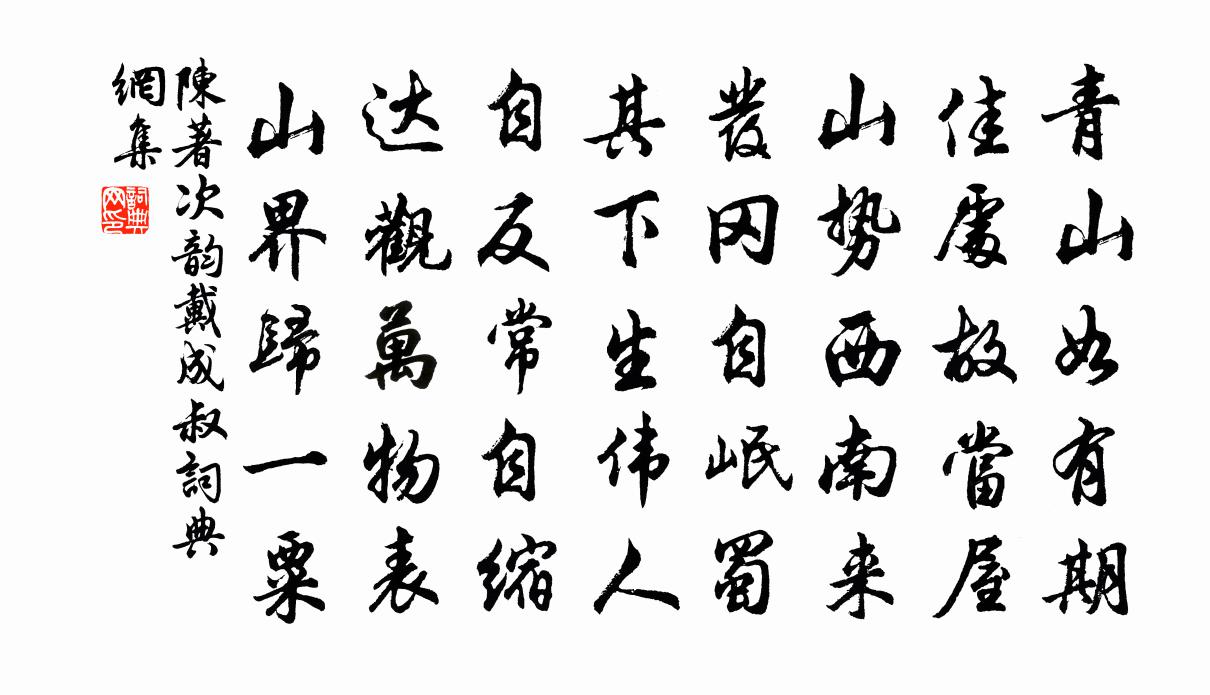 青山如有期
佳處故當屋
山勢西南来
發冈自岷蜀
其下生伟人
自反常自缩
达觀萬物表
山界歸一粟
陳著次韵戴成叔詞典
網集
詞典
网印